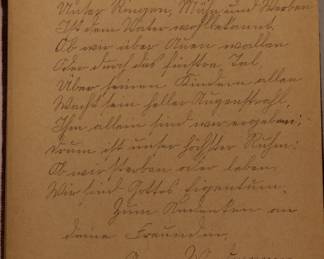 Unser Ringen, Mühn und Werben
Ist dem Vater wohlbekannt,
Ob wir über Auen wallen
Oder durch das finstre Tal,
Über seinen Kindern allen
Wacht sein heller Augenstrahl.
Ihm allein sind wir ergeben;
Drum ist unser höchster Ruhm:
Ob wir sterben oder leben,
Wir sind Gottes Eigentum.
Zum Andenken an
deine Freundin